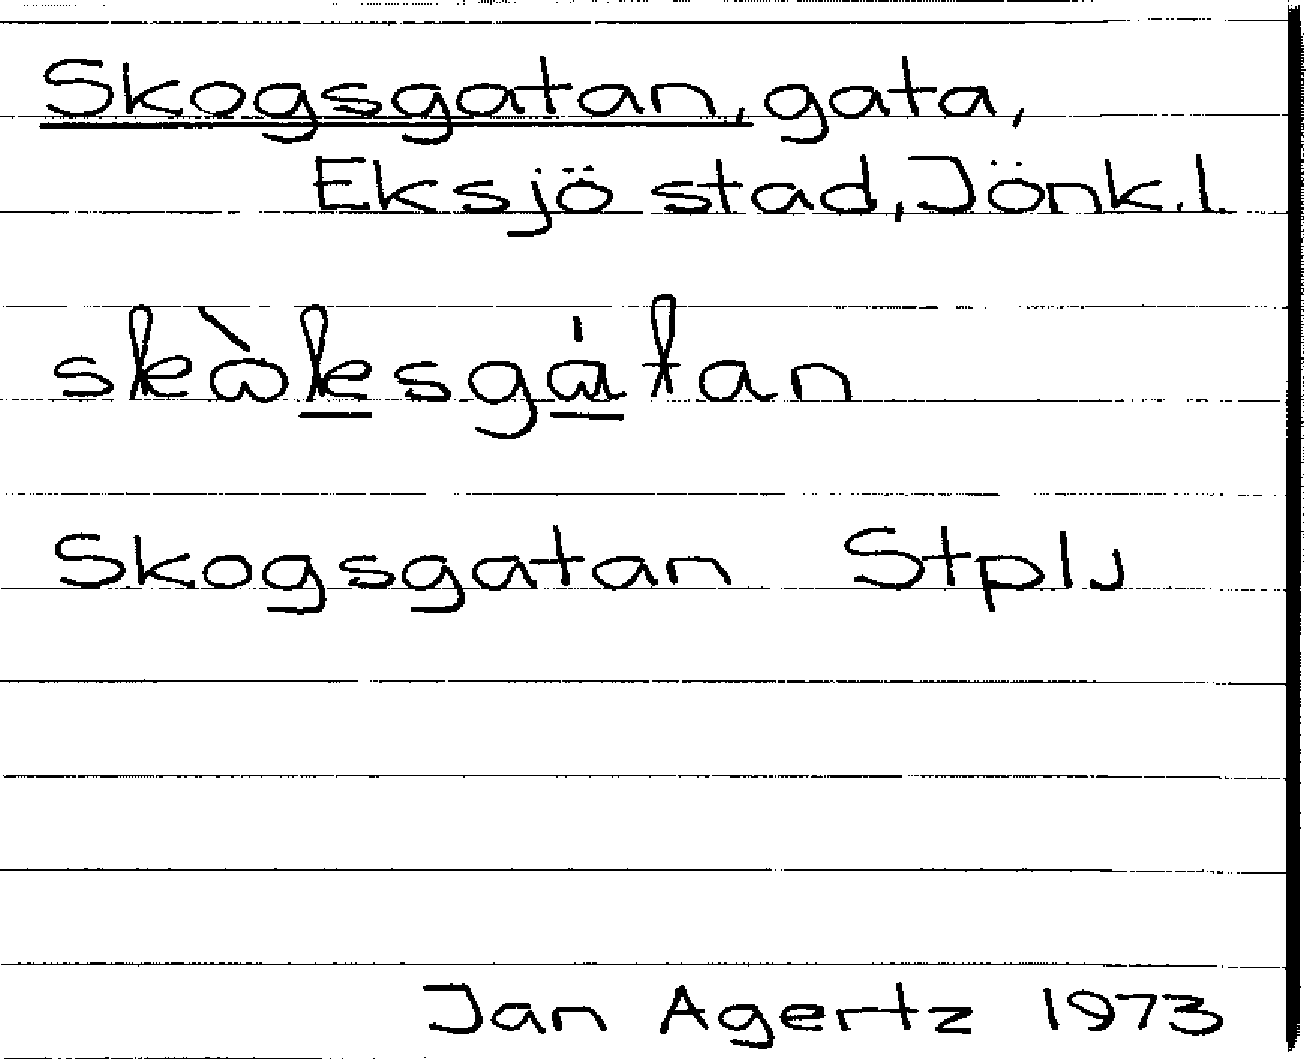 Skogsgatan, gata,
Eksjö stad, Jönk.l.
skɷ̀ksgɑ́tan
Skogsgatan Stplj
Jan Agertz 1973